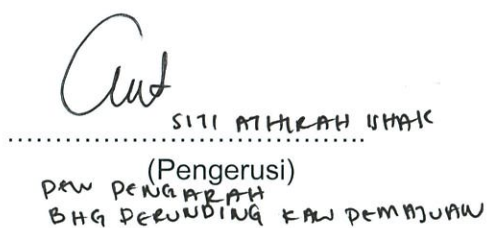 SITI ATHIRAH ISHAK
(Pengerusi)
PEN PENGARAH
BHG PERUNDING KAW PEMAJUAN